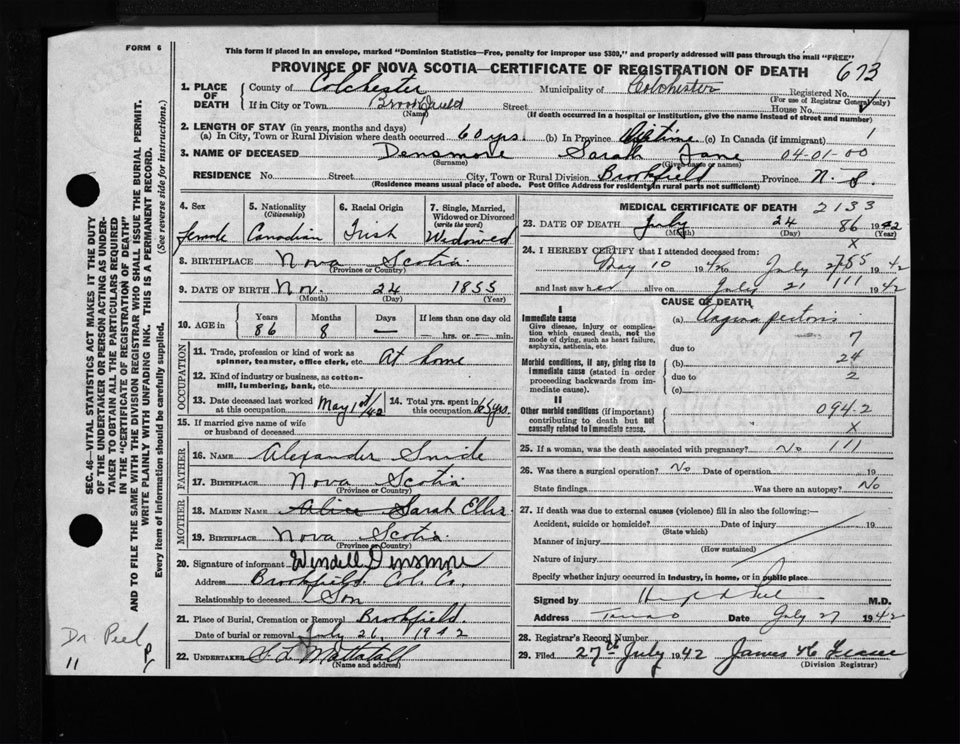 FORM 6
This form if placed in an envelope, marked "Dominion Statistics—Free, penalty for improper use $300," and properly addressed will pass through the mail "FREE"
PROVINCE OF NOVA SCOTIA—CERTIFICATE OF REGISTRATION OF DEATH 673
1. PLACE OF DEATH
County of Colchester Municipality of Colchester Registered No.
(For use of Registrar General only)
If in City or Town Brookfield Street House No.
(Name) (If death occurred in a hospital or institution, give the name instead of street and number)
2. LENGTH OF STAY (in years, months and days)
(a) In City, Town or Rural Division where death occurred 60 yrs. (b) In Province Lifetime (c) In Canada (if immigrant) 1
3. NAME OF DECEASED Densmore Sarah Jane 04-01-00
(Surname) (Given name or names)
RESIDENCE No. Street City, Town or Rural Division Brookfield Province N.S.
(Residence means usual place of abode. Post Office Address for residents in rural parts not sufficient)
4. Sex 5. Nationality 6. Racial Origin 7. Single, Married, Widowed or Divorced
(Citizenship) (write the word)
female Canadian Irish Widowed
8. BIRTHPLACE Nova Scotia
(Province or Country)
9. DATE OF BIRTH Nov. 24 1855
(Month) (Day) (Year)
10. AGE in Years Months Days If less than one day old
86 8 — — hrs. or — min.
OCCUPATION
11. Trade, profession or kind of work as spinner, teamster, office clerk, etc. At home
12. Kind of industry or business, as cotton-mill, lumbering, bank, etc.
13. Date deceased last worked at this occupation May 1st/42 14. Total yrs. spent in this occupation 65 yrs.
15. If married give name of wife or husband of deceased
FATHER
16. NAME Alexander Snide
17. BIRTHPLACE Nova Scotia
(Province or Country)
MOTHER
18. MAIDEN NAME Alice Sarah Ellis
19. BIRTHPLACE Nova Scotia
(Province or Country)
20. Signature of informant Wendell Densmore
Address Brookfield Col. Co.
Relationship to deceased Son
21. Place of Burial, Cremation or Removal Brookfield.
Date of burial or removal July 26, 1942
22. UNDERTAKER Mattatall
(Name and address)
MEDICAL CERTIFICATE OF DEATH 2133
23. DATE OF DEATH July 24 86 1942
(Month) (Day) (Year)
x
24. I HEREBY CERTIFY that I attended deceased from:
May 10 1942 to July 1942
and last saw her alive on July 21 111 1942
CAUSE OF DEATH
Immediate cause (a) Angina pectoris
Give disease, injury or complication which caused death, not the mode of dying, such as heart failure, asphyxia, asthenia, etc.
due to 7
Morbid conditions, if any, giving rise to immediate cause (stated in order proceeding backwards from immediate cause).
(b) 24
due to 2
(c)
II
Other morbid conditions (if important) contributing to death but not causally related to immediate cause.
094-2
x
25. If a woman, was the death associated with pregnancy? No 111
26. Was there a surgical operation? No Date of operation 19
State findings Was there an autopsy? No
27. If death was due to external causes (violence) fill in also the following:—
Accident, suicide or homicide? Date of injury 19
(State which)
Manner of injury
(How sustained)
Nature of injury
Specify whether injury occurred in industry, in home, or in public place
Signed by M.D.
Address Truro Date July 27 1942
28. Registrar's Record Number
29. Filed 27th July 1942
(Division Registrar)
SEC. 46—VITAL STATISTICS ACT MAKES IT THE DUTY
OF THE UNDERTAKER OR PERSON ACTING AS UNDER-
TAKER TO OBTAIN ALL THE PARTICULARS REQUIRED
IN THE "CERTIFICATE OF REGISTRATION OF DEATH"
AND TO FILE THE SAME WITH THE DIVISION REGISTRAR WHO SHALL ISSUE THE BURIAL PERMIT.
WRITE PLAINLY WITH UNFADING INK. THIS IS A PERMANENT RECORD.
Every item of information should be carefully supplied. (See reverse side for instructions.)
Dr Peel
11